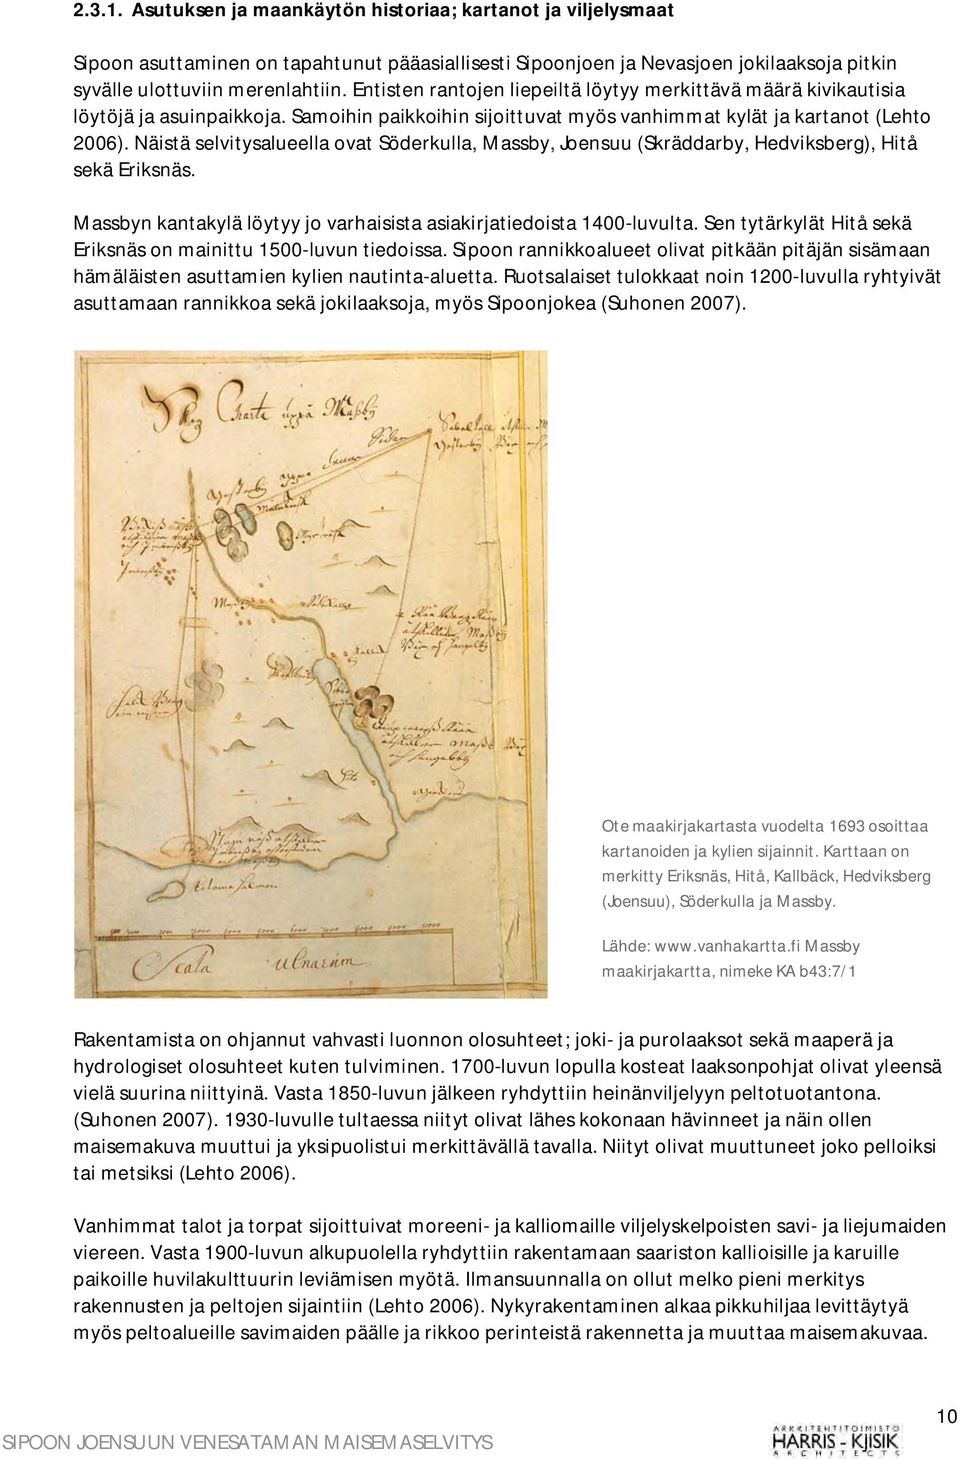 2.3.1. Asutuksen ja maankäytön historiaa; kartanot ja viljelysmaat
Sipoon asuttaminen on tapahtunut pääasiallisesti Sipoonjoen ja Nevasjoen jokilaaksoja pitkin
syvälle ulottuviin merenlahtiin. Entisten rantojen liepeiltä löytyy merkittävä määrä kivikautisia
löytöjä ja asuinpaikkoja. Samoihin paikkoihin sijoittuvat myös vanhimmat kylät ja kartanot (Lehto
2006). Näistä selvitysalueella ovat Söderkulla, Massby, Joensuu (Skräddarby, Hedviksberg), Hitå
sekä Eriksnäs.
Massbyn kantakylä löytyy jo varhaisista asiakirjatiedoista 1400-luvulta. Sen tytärkylät Hitå sekä
Eriksnäs on mainittu 1500-luvun tiedoissa. Sipoon rannikkoalueet olivat pitkään pitäjän sisämaan
hämäläisten asuttamien kylien nautinta-aluetta. Ruotsalaiset tulokkaat noin 1200-luvulla ryhtyivät
asuttamaan rannikkoa sekä jokilaaksoja, myös Sipoonjokea (Suhonen 2007).
Charta uppå Maßbÿ
Scala Ulnarum
Ote maakirjakartasta vuodelta 1693 osoittaa
kartanoiden ja kylien sijainnit. Karttaan on
merkitty Eriksnäs, Hitå, Kallbäck, Hedviksberg
(Joensuu), Söderkulla ja Massby.
Lähde: www.vanhakartta.fi Massby
maakirjakartta, nimeke KA b43:7/1
Rakentamista on ohjannut vahvasti luonnon olosuhteet; joki- ja purolaaksot sekä maaperä ja
hydrologiset olosuhteet kuten tulviminen. 1700-luvun lopulla kosteat laaksonpohjat olivat yleensä
vielä suurina niittyinä. Vasta 1850-luvun jälkeen ryhdyttiin heinänviljelyyn peltotuotantona.
(Suhonen 2007). 1930-luvulle tultaessa niityt olivat lähes kokonaan hävinneet ja näin ollen
maisemakuva muuttui ja yksipuolistui merkittävällä tavalla. Niityt olivat muuttuneet joko pelloiksi
tai metsiksi (Lehto 2006).
Vanhimmat talot ja torpat sijoittuivat moreeni- ja kalliomaille viljelyskelpoisten savi- ja liejumaiden
viereen. Vasta 1900-luvun alkupuolella ryhdyttiin rakentamaan saariston kallioisille ja karuille
paikoille huvilakulttuurin leviämisen myötä. Ilmansuunnalla on ollut melko pieni merkitys
rakennusten ja peltojen sijaintiin (Lehto 2006). Nykyrakentaminen alkaa pikkuhiljaa levittäytyä
myös peltoalueille savimaiden päälle ja rikkoo perinteistä rakennetta ja muuttaa maisemakuvaa.
10
SIPOON JOENSUUN VENESATAMAN MAISEMASELVITYS
ARKKITEHTITOIMISTO
HARRIS - KJISIK
ARCHITECTS